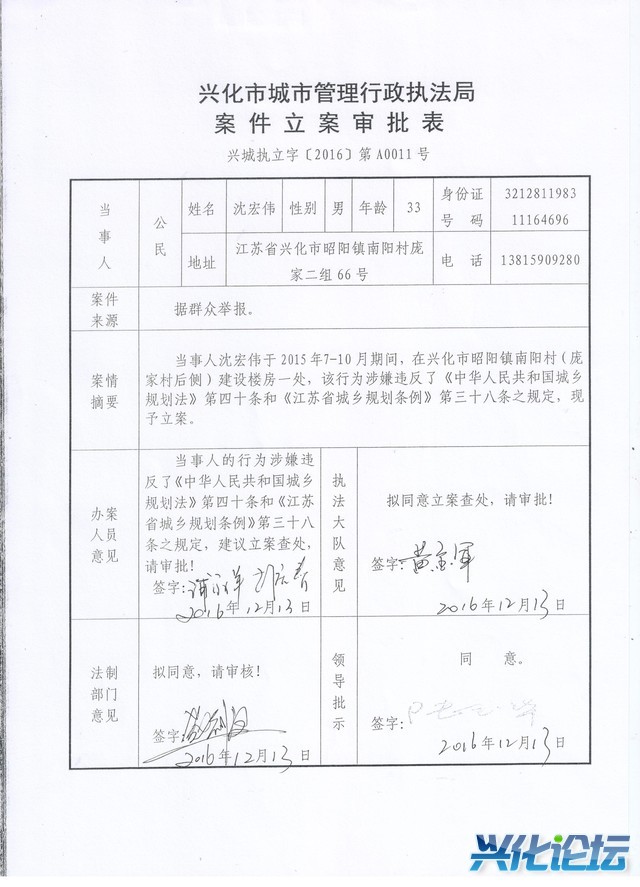 兴化市城市管理行政执法局
案件立案审批表
兴城执立字〔2016〕第A0011号
当事人
公民
姓名 沈宏伟 性别 男 年龄 33
身份证号码
3212811983
11164696
地址
江苏省兴化市昭阳镇南阳村庞
家二组66号
电话 13815909280
案件来源
据群众举报。
案情摘要
当事人沈宏伟于2015年7-10月期间，在兴化市昭阳镇南阳村（庞
家村后侧）建设楼房一处，该行为涉嫌违反了《中华人民共和国城乡
规划法》第四十条和《江苏省城乡规划条例》第三十八条之规定，现
予立案。
办案人员意见
当事人的行为涉嫌违
反了《中华人民共和国城乡
规划法》第四十条和《江苏
省城乡规划条例》第三十八
条之规定，建议立案查处，
请审批！
签字：
2016年12月13日
执法大队意见
拟同意立案查处，请审批！
签字：黄金军
2016年12月13日
法制部门意见
拟同意，请审核！
签字：
2016年12月13日
领导批示
同意。
签字：
2016年12月13日
兴化论坛